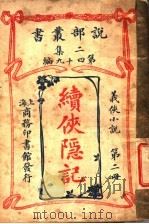 說部叢書
二集
第四十九編
義俠小說 第二冊
續俠隱記
上海
商務印書館發行